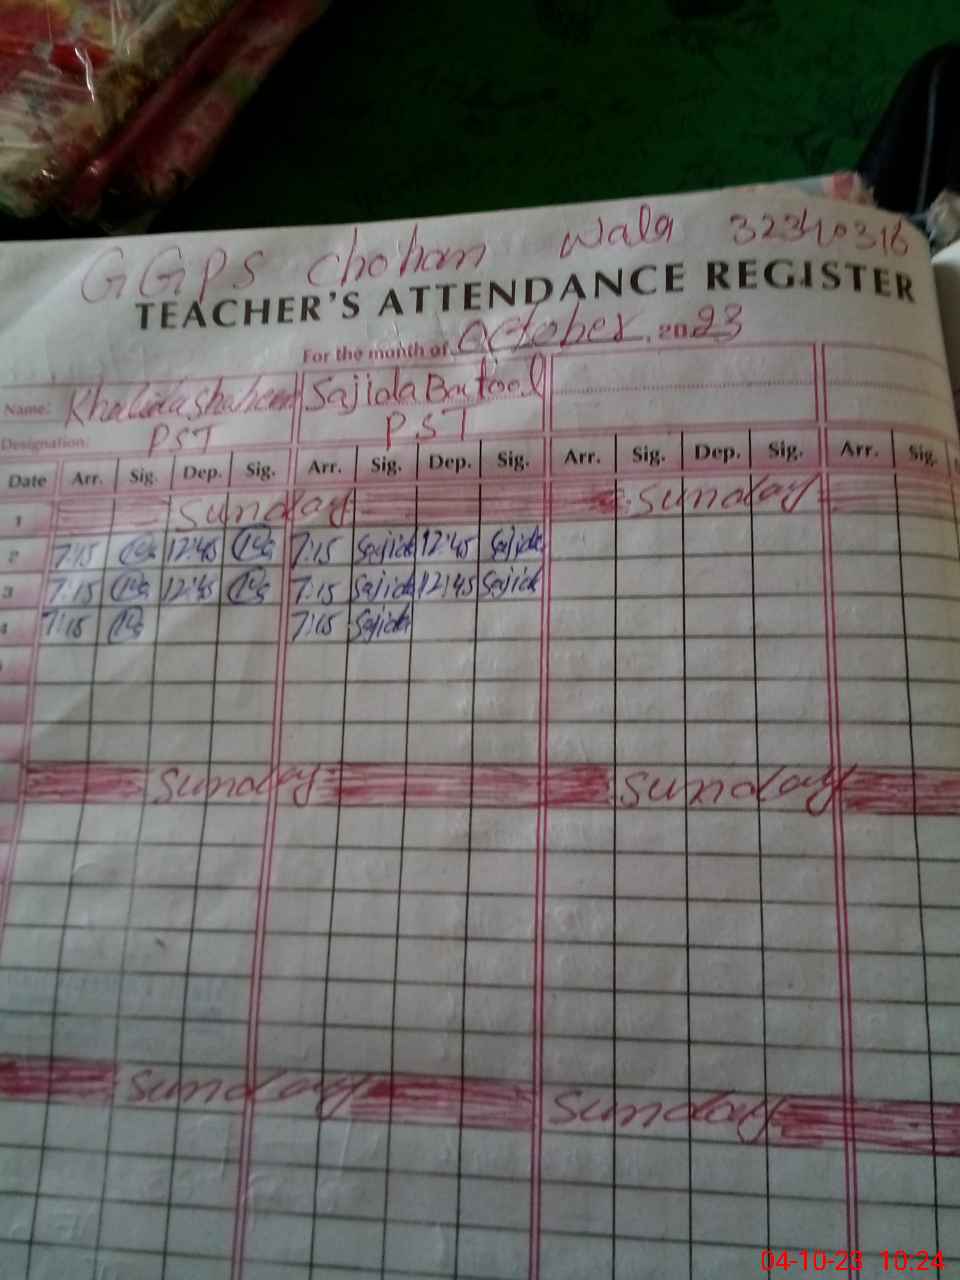 GGPS Choham Wala 32340316
TEACHER'S ATTENDANCE REGISTER
For the month of October, 2023
Name: Khalida Shaheen Sajida Batool
Designation: PST PST
Date Arr. Sig. Dep. Sig. Arr. Sig. Dep. Sig. Arr. Sig. Dep. Sig. Arr. Sig.
1 Sunday Sunday
2 7:15 12:45 7:15 Sajida 12:45 Sajida
3 7:15 12:45 7:15 Sajida 12:45 Sajida
4 7:15 7:15 Sajida
Sunday Sunday
Sunday Sunday
04-10-23 10:24